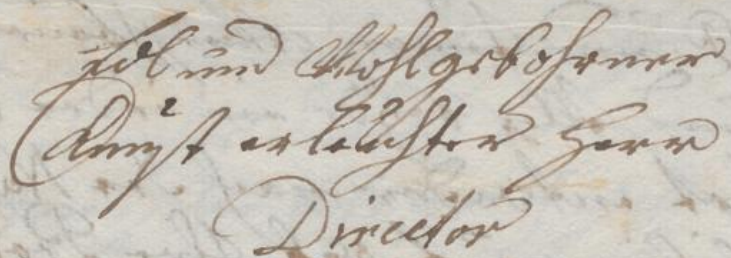 Edl und Wohlgebohrner
Kunst erleuchter Herr
Director